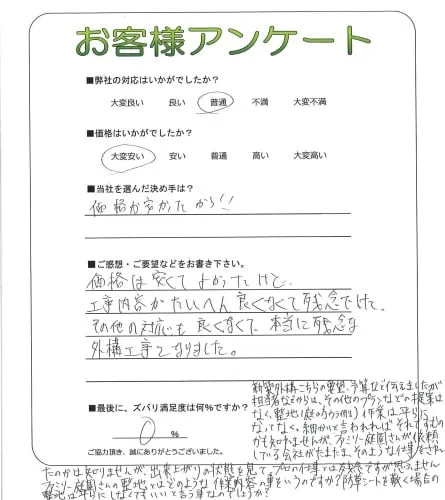 お客様アンケート
■弊社の対応はいかがでしたか?
大変良い 良い 普通 不満 大変不満
■価格はいかがでしたか?
大変安い 安い 普通 高い 大変高い
■当社を選んだ決め手は?
価格が安かったから!!
■ご感想・ご要望などをお書き下さい。
価格は安くてよかったけど、
工事内容がたいへん良くなくて残念でした、
その他の対応も良くなくて、本当に残念な
外構工事となりました。
■最後に、ズバリ満足度は何%ですか?
0 %
ご協力頂き、誠にありがとうございました。
新築外構こちらの要望、予算など伝えましたが
担当者などからは、その他のプランなどの提案は
なく、整地(庭の)作業は平らに
なってなく、細かいて言われれば それですむの
かも知れませんが、ファミリー庭園さんが依頼
している会社がたまたま、そのような仕事をされ
たのかは知りませんが、出来上がりの状態を見て、プロの仕事では残念ですが思えません
ファミリー庭園さんではどのような作業内容の事をいうのですか?防草シートを敷く場合の
整地は平らにしなくてもいいてもう事なのでしょうか?